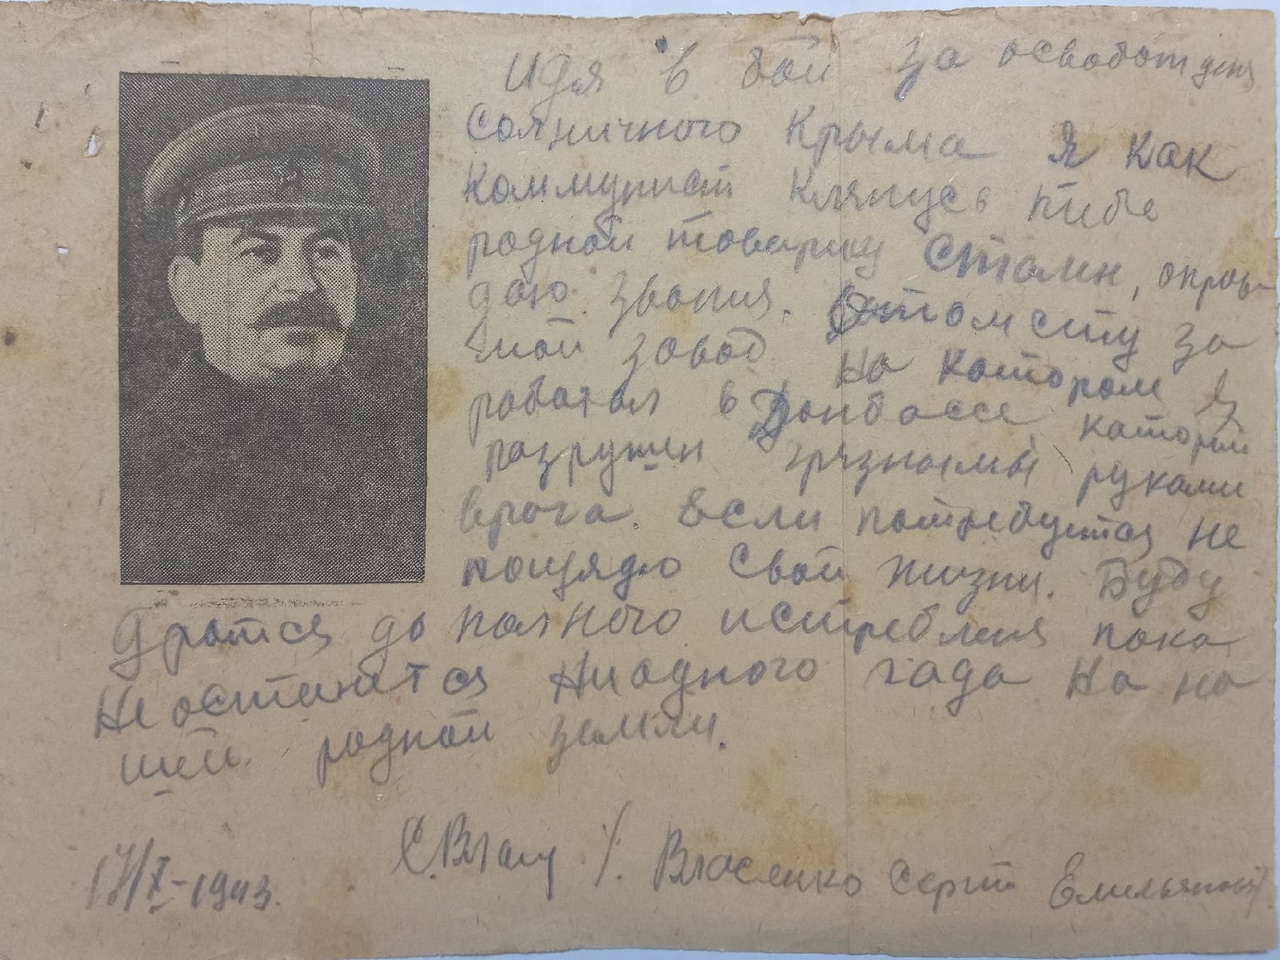 Идя в бой за освобождения
солничного Крыма Я как
коммунист клянусь тибе
родной товарищ Сталин, оправ-
даю звания. Отомсту за
мой завод на котором я
работал в Донбассе, каторий
разрушен грязнымы руками
врага. Если потребуется не
пощядю свой жизни. Буду
дратся до полного истребления пока
неостанется ниодного гада на на
шей родной земли.
С.Влас /. Власенко Сергей Емильянович/
17/X-1943.